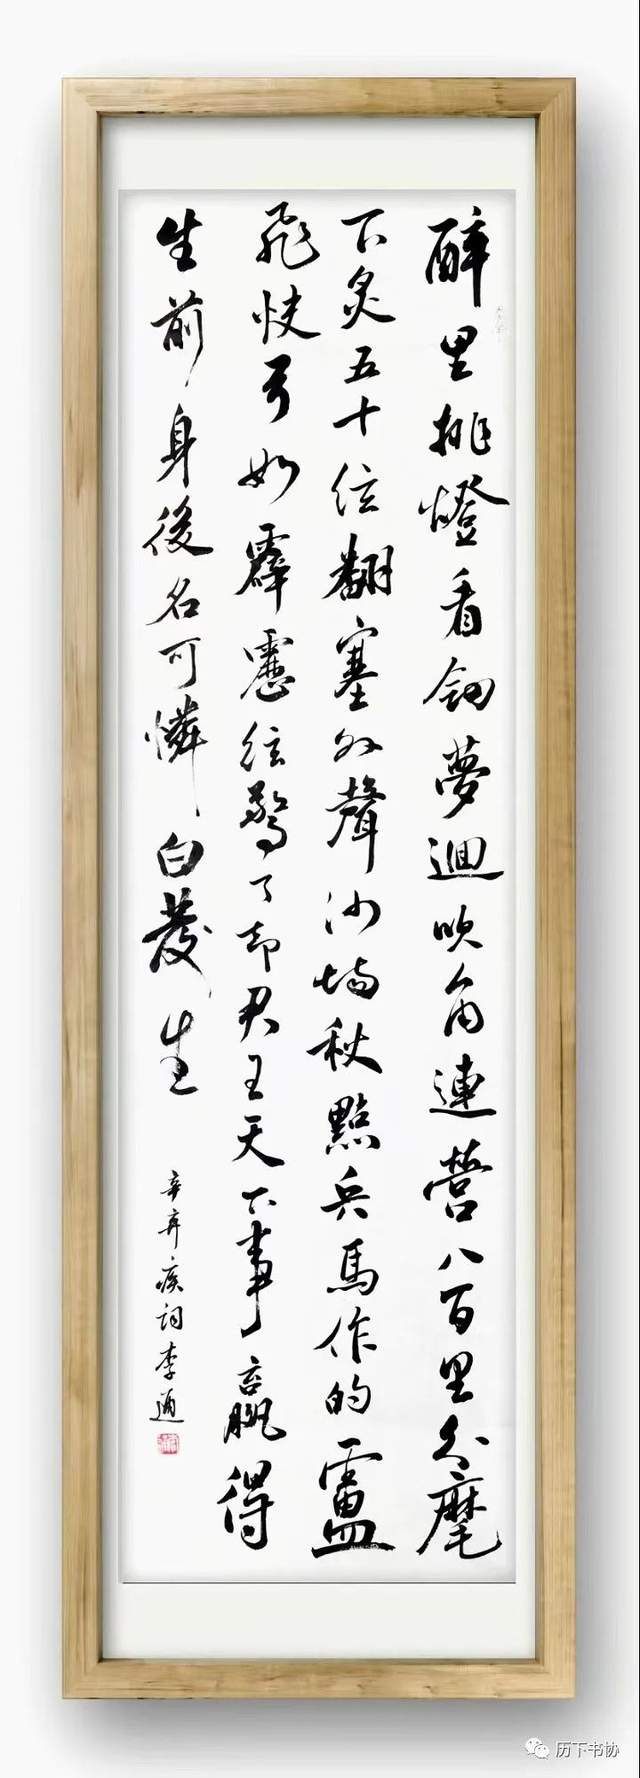 醉里挑燈看釼夢迴吹角連營八百里分麾
下炙五十絃翻塞外聲沙場秋點兵馬作的盧
飛快弓如霹靂絃驚了却君王天下事贏得
生前身後名可憐白發生
辛弃疾词李通
历下书协